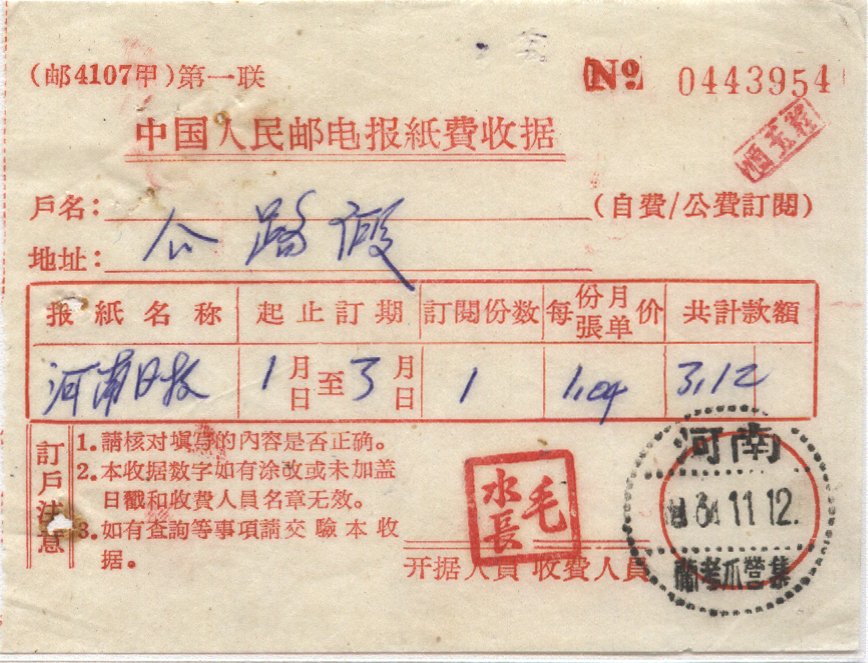 (邮4107甲)第一联
№ 0443954
中国人民邮电报紙費收据
戶名:
(自費/公費訂閱)
公路段
地址:
报紙名称 起止訂期 訂閱份数 每份月張单价 共計款額
河南日报 1月日至3月日 1 1.04 3.12
訂戶注意
1.請核对填写的內容是否正确。
2.本收据数字如有涂改或未加盖
日戳和收費人員名章无效。
3.如有查詢等事項請交驗本收
据。
毛水長
开据人員 收費人員
河南
64 11 12.
蘭考爪营集